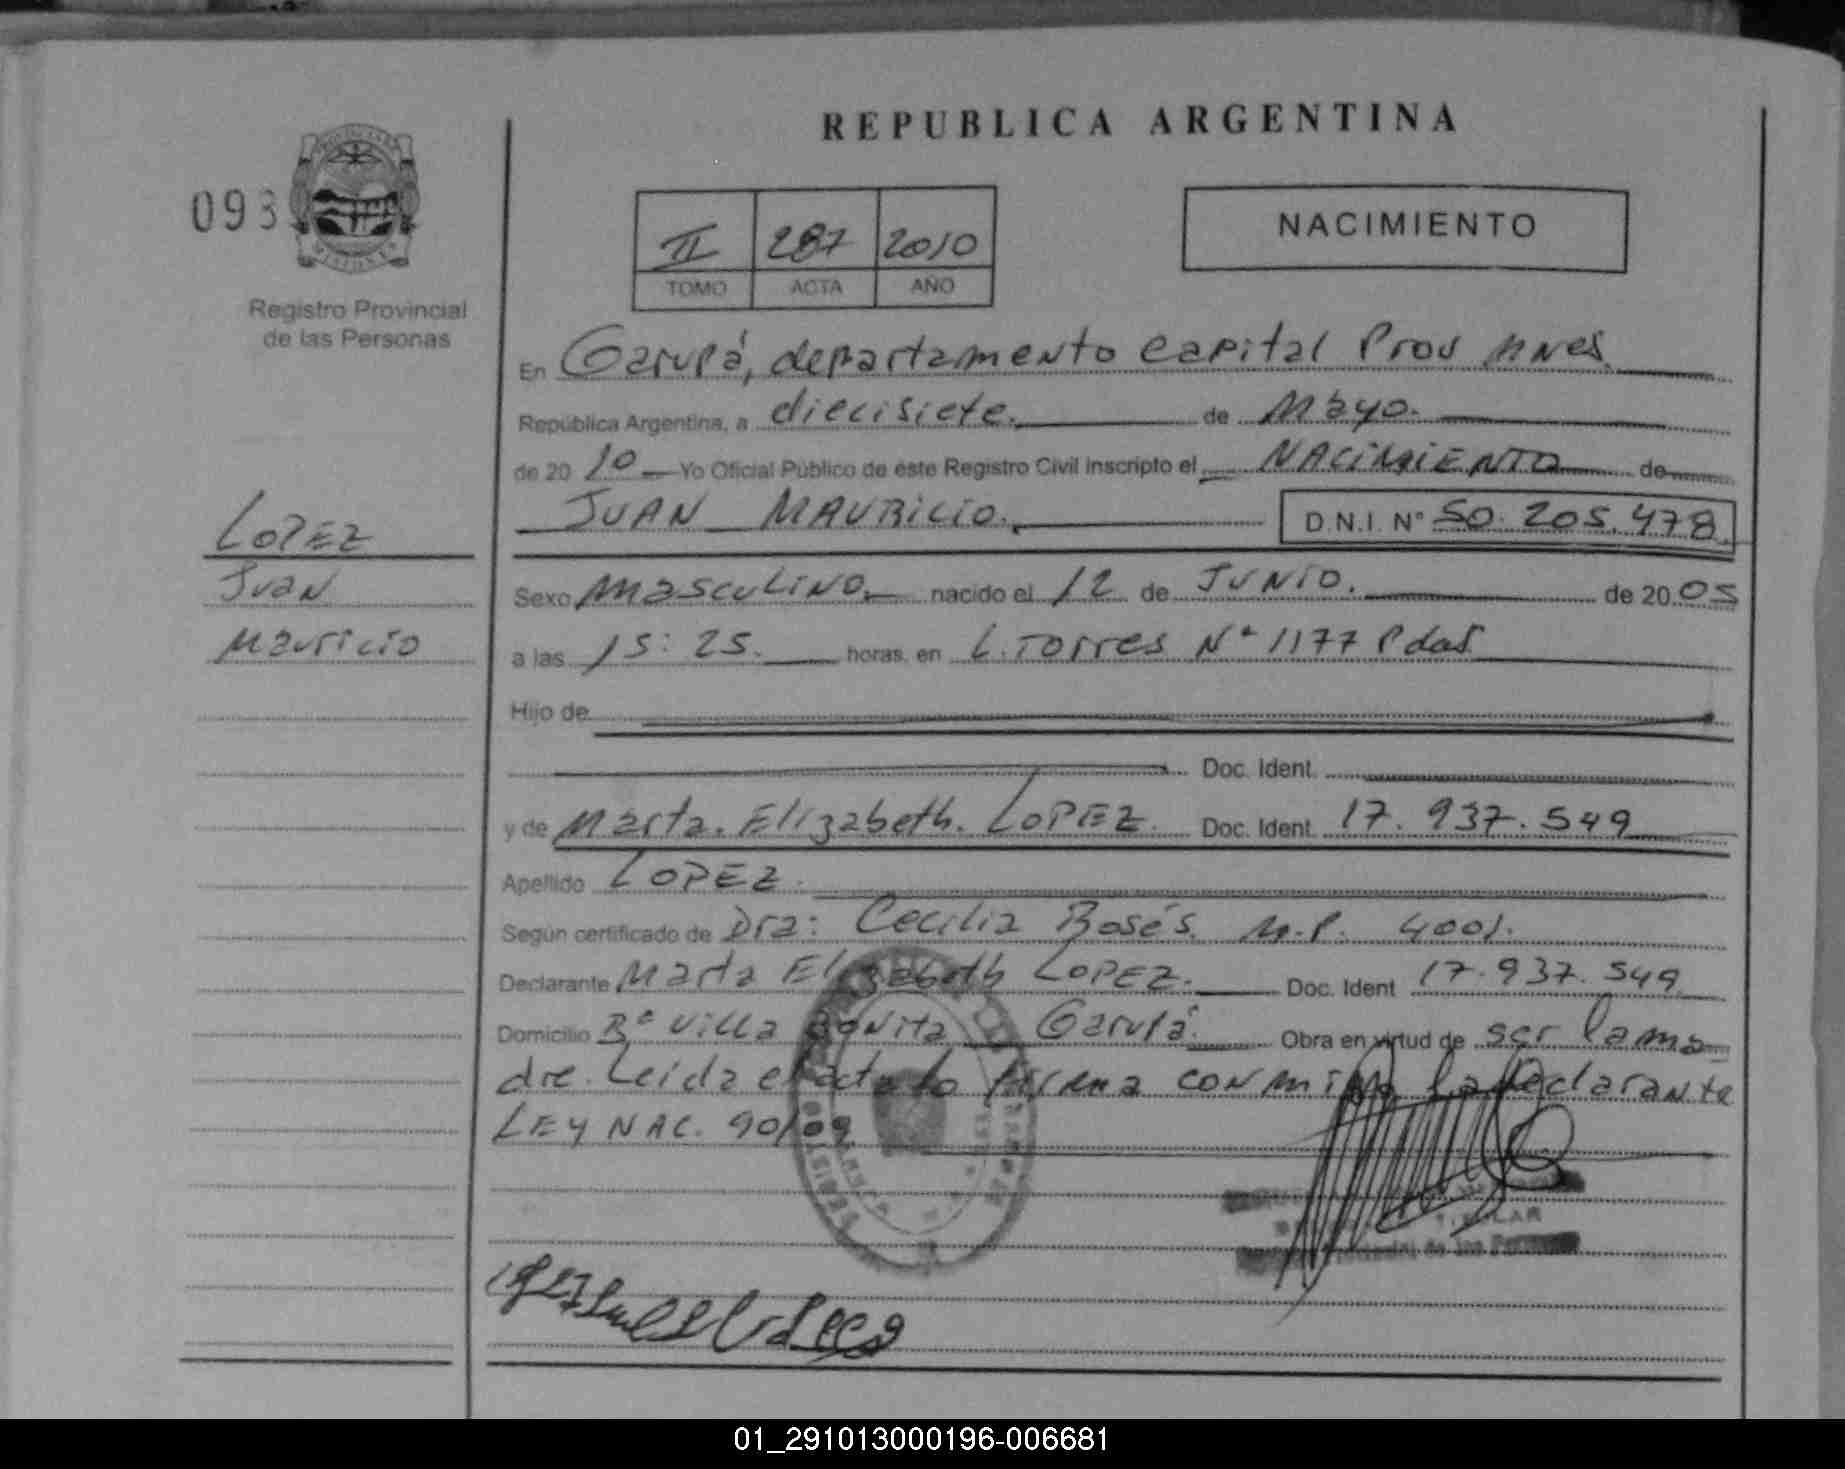 REPUBLICA ARGENTINA
093
NACIMIENTO
II 287 2010
TOMO ACTA AÑO
Registro Provincial
de las Personas
En Garupá, departamento Capital Prov Mnes.
República Argentina, a diecisiete. de Mayo.
de 20 10 Yo Oficial Público de éste Registro Civil inscripto el NACIMIENTO de
JUAN MAURICIO. D.N.I. N° 50.205.478
LOPEZ
Juan
Mauricio
Sexo Masculino. nacido el 12 de JUNIO. de 20 05
a las 15:25. horas, en L. Torres N° 1177 Pdas
Hijo de
Doc. Ident.
y de Marta. Elizabeth. LOPEZ. Doc. Ident. 17.937.549
Apellido LOPEZ.
Según certificado de Dra: Cecilia Bosés. M.P. 4001.
Declarante Marta Elizabeth LOPEZ. Doc. Ident 17.937.549
Domicilio B° Villa Bonita Garupá. Obra en virtud de ser la ma
dre. Leida el acta la firma conmigo la declarante
LEY NAC. 90/09
TITULAR
Provincial de las Personas
01_291013000196-006681